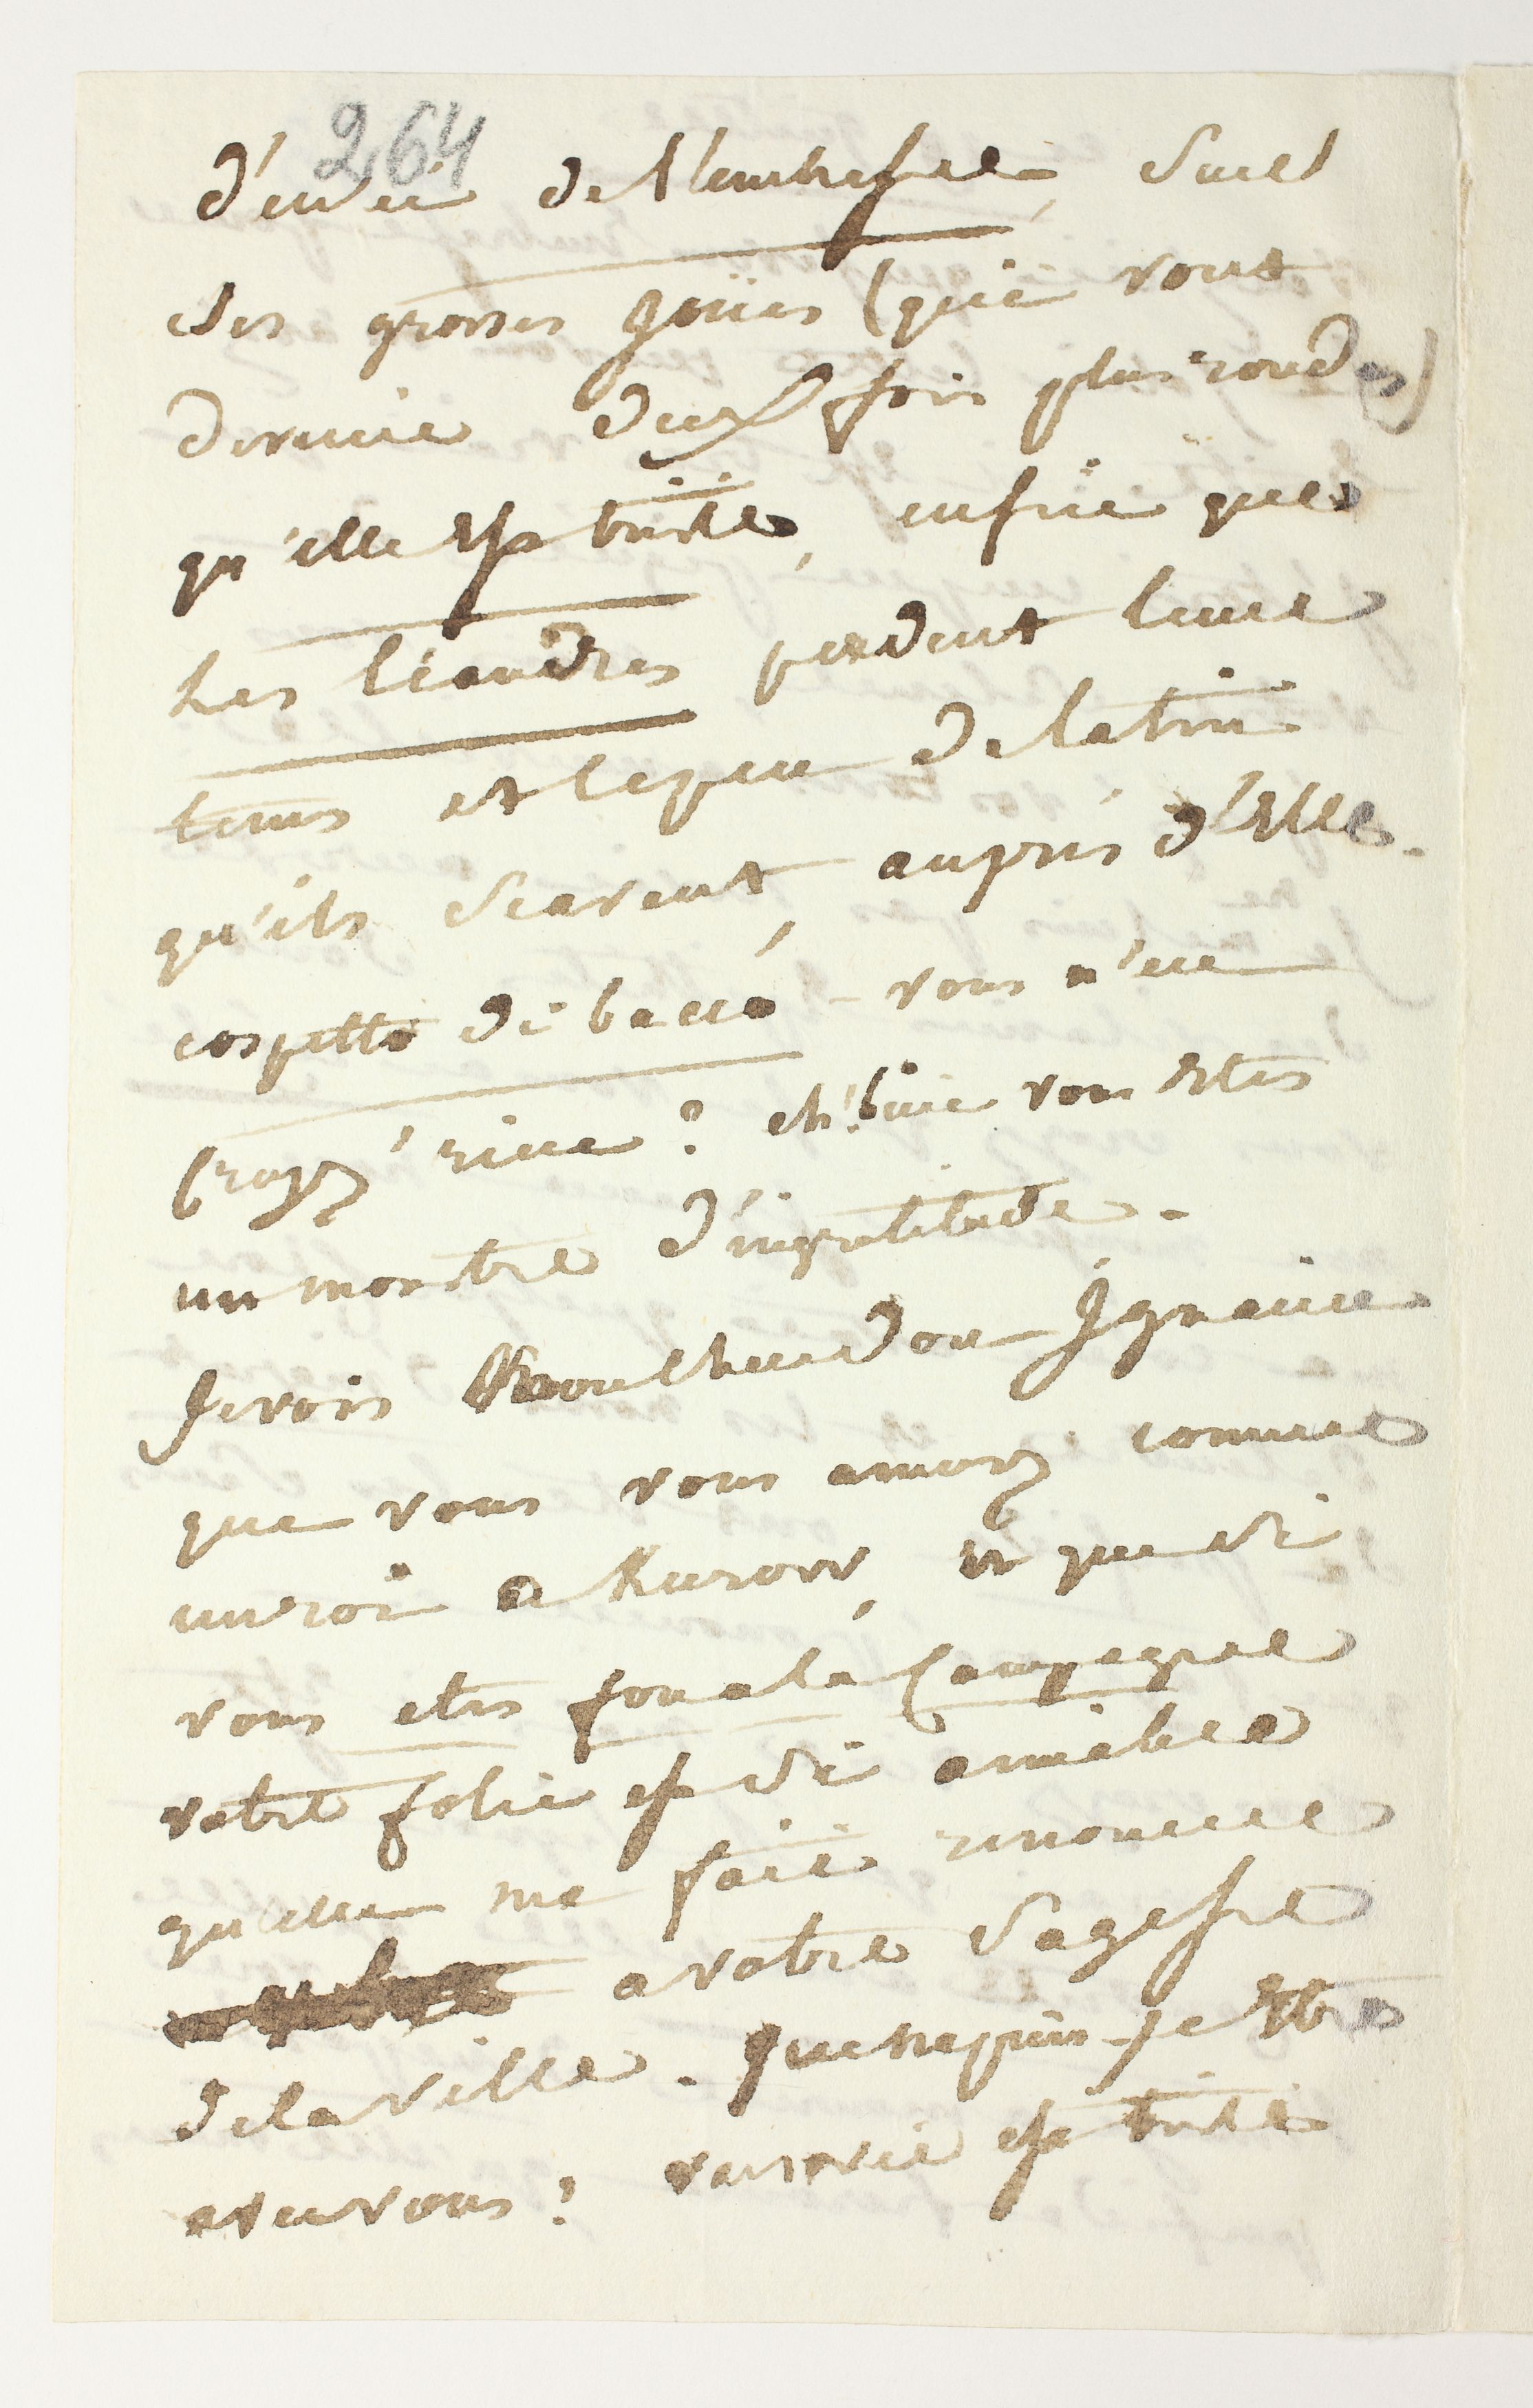 264
d'envie de l'embrasser sur
ses grosses joües (qui vont
devenir deux fois plus rondes)
qu'elle est triste, enfin que
Les Léandres perdent leur
tems et le peu de latin
qu'ils scavent, auprès d'Elle.
cospetto di bacco - vous n'en
croyez rien? eh! bien vous Etes
un monstre d'ingratitude.
Je vois Don Ignaïce
que vous vous amusez comme
un roi a Kurow, et que si
vous etes fou a la Campagne
votre folie est si aimable
qu'elle me fait renoncer
a votre sagesse
de la ville. que ne puis-je Etre
avec vous? varsovie est triste